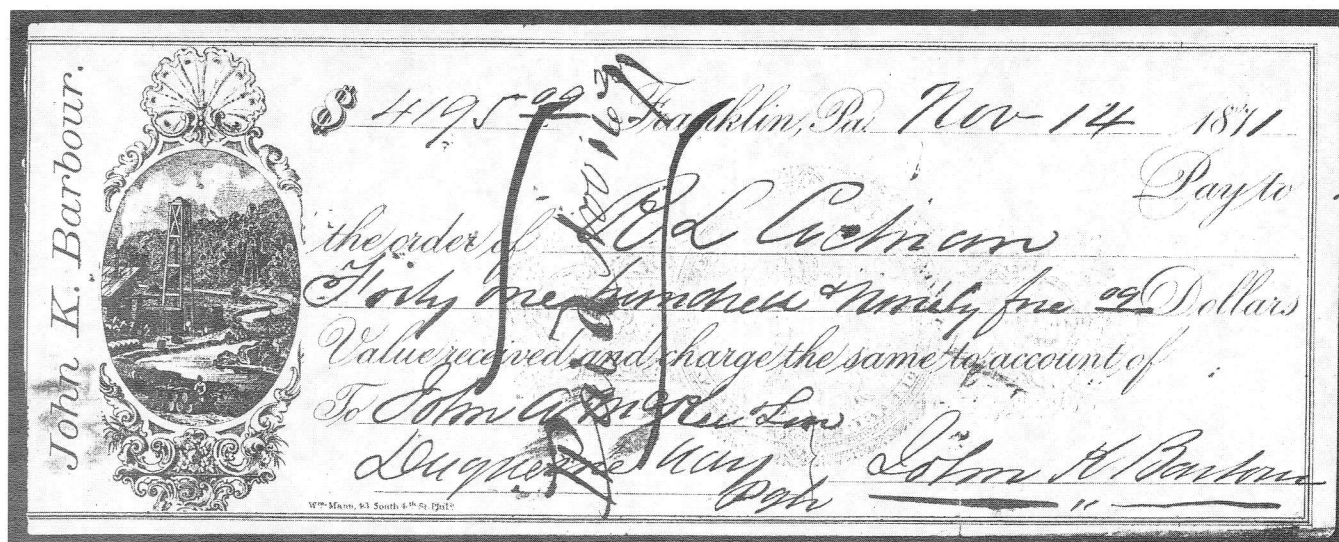 John K. Barbour.
$ 4195 09 Franklin, Pa. Nov 14 1871
Pay to
the order of R L Cochran
Forty one hundred & ninety five 09 Dollars
Value received and charge the same to account of
To John A
Duquesne Way
Pgh
John K Barbour
Wm. Mann, 43 South 4th St. Phila.